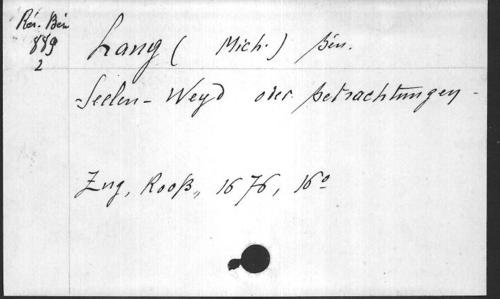 Rés. Bén.
889
2
Lang (Mich.) Bén.
Seelen-Weyd oder Betrachtungen -
Zug, Rooß, 1676, 16°